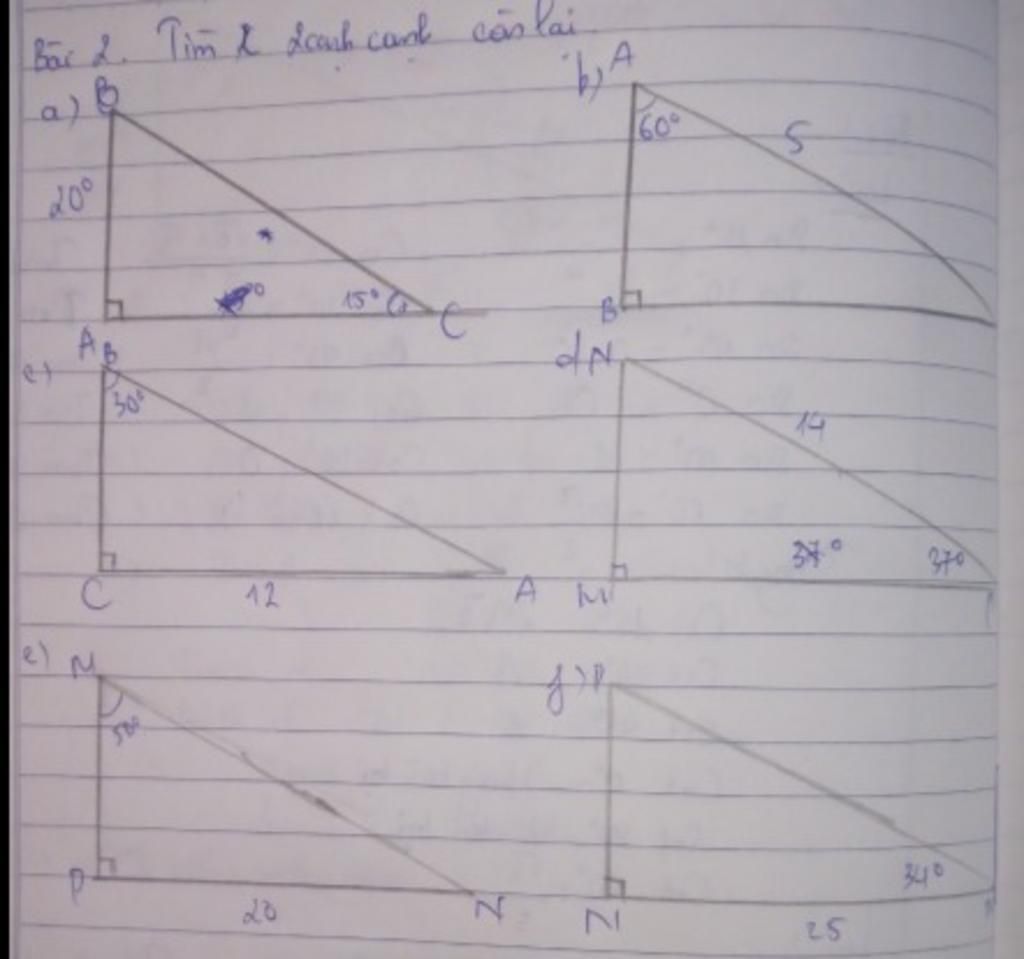 Bài 2. Tìm 2 cạnh còn lại.
a) B
20°
15°
A
C
b) A
60°
5
B
c)
B
30°
C
12
A
d) N
14
37°
37°
M
e) M
50°
P
20
N
f) P
34°
N
25